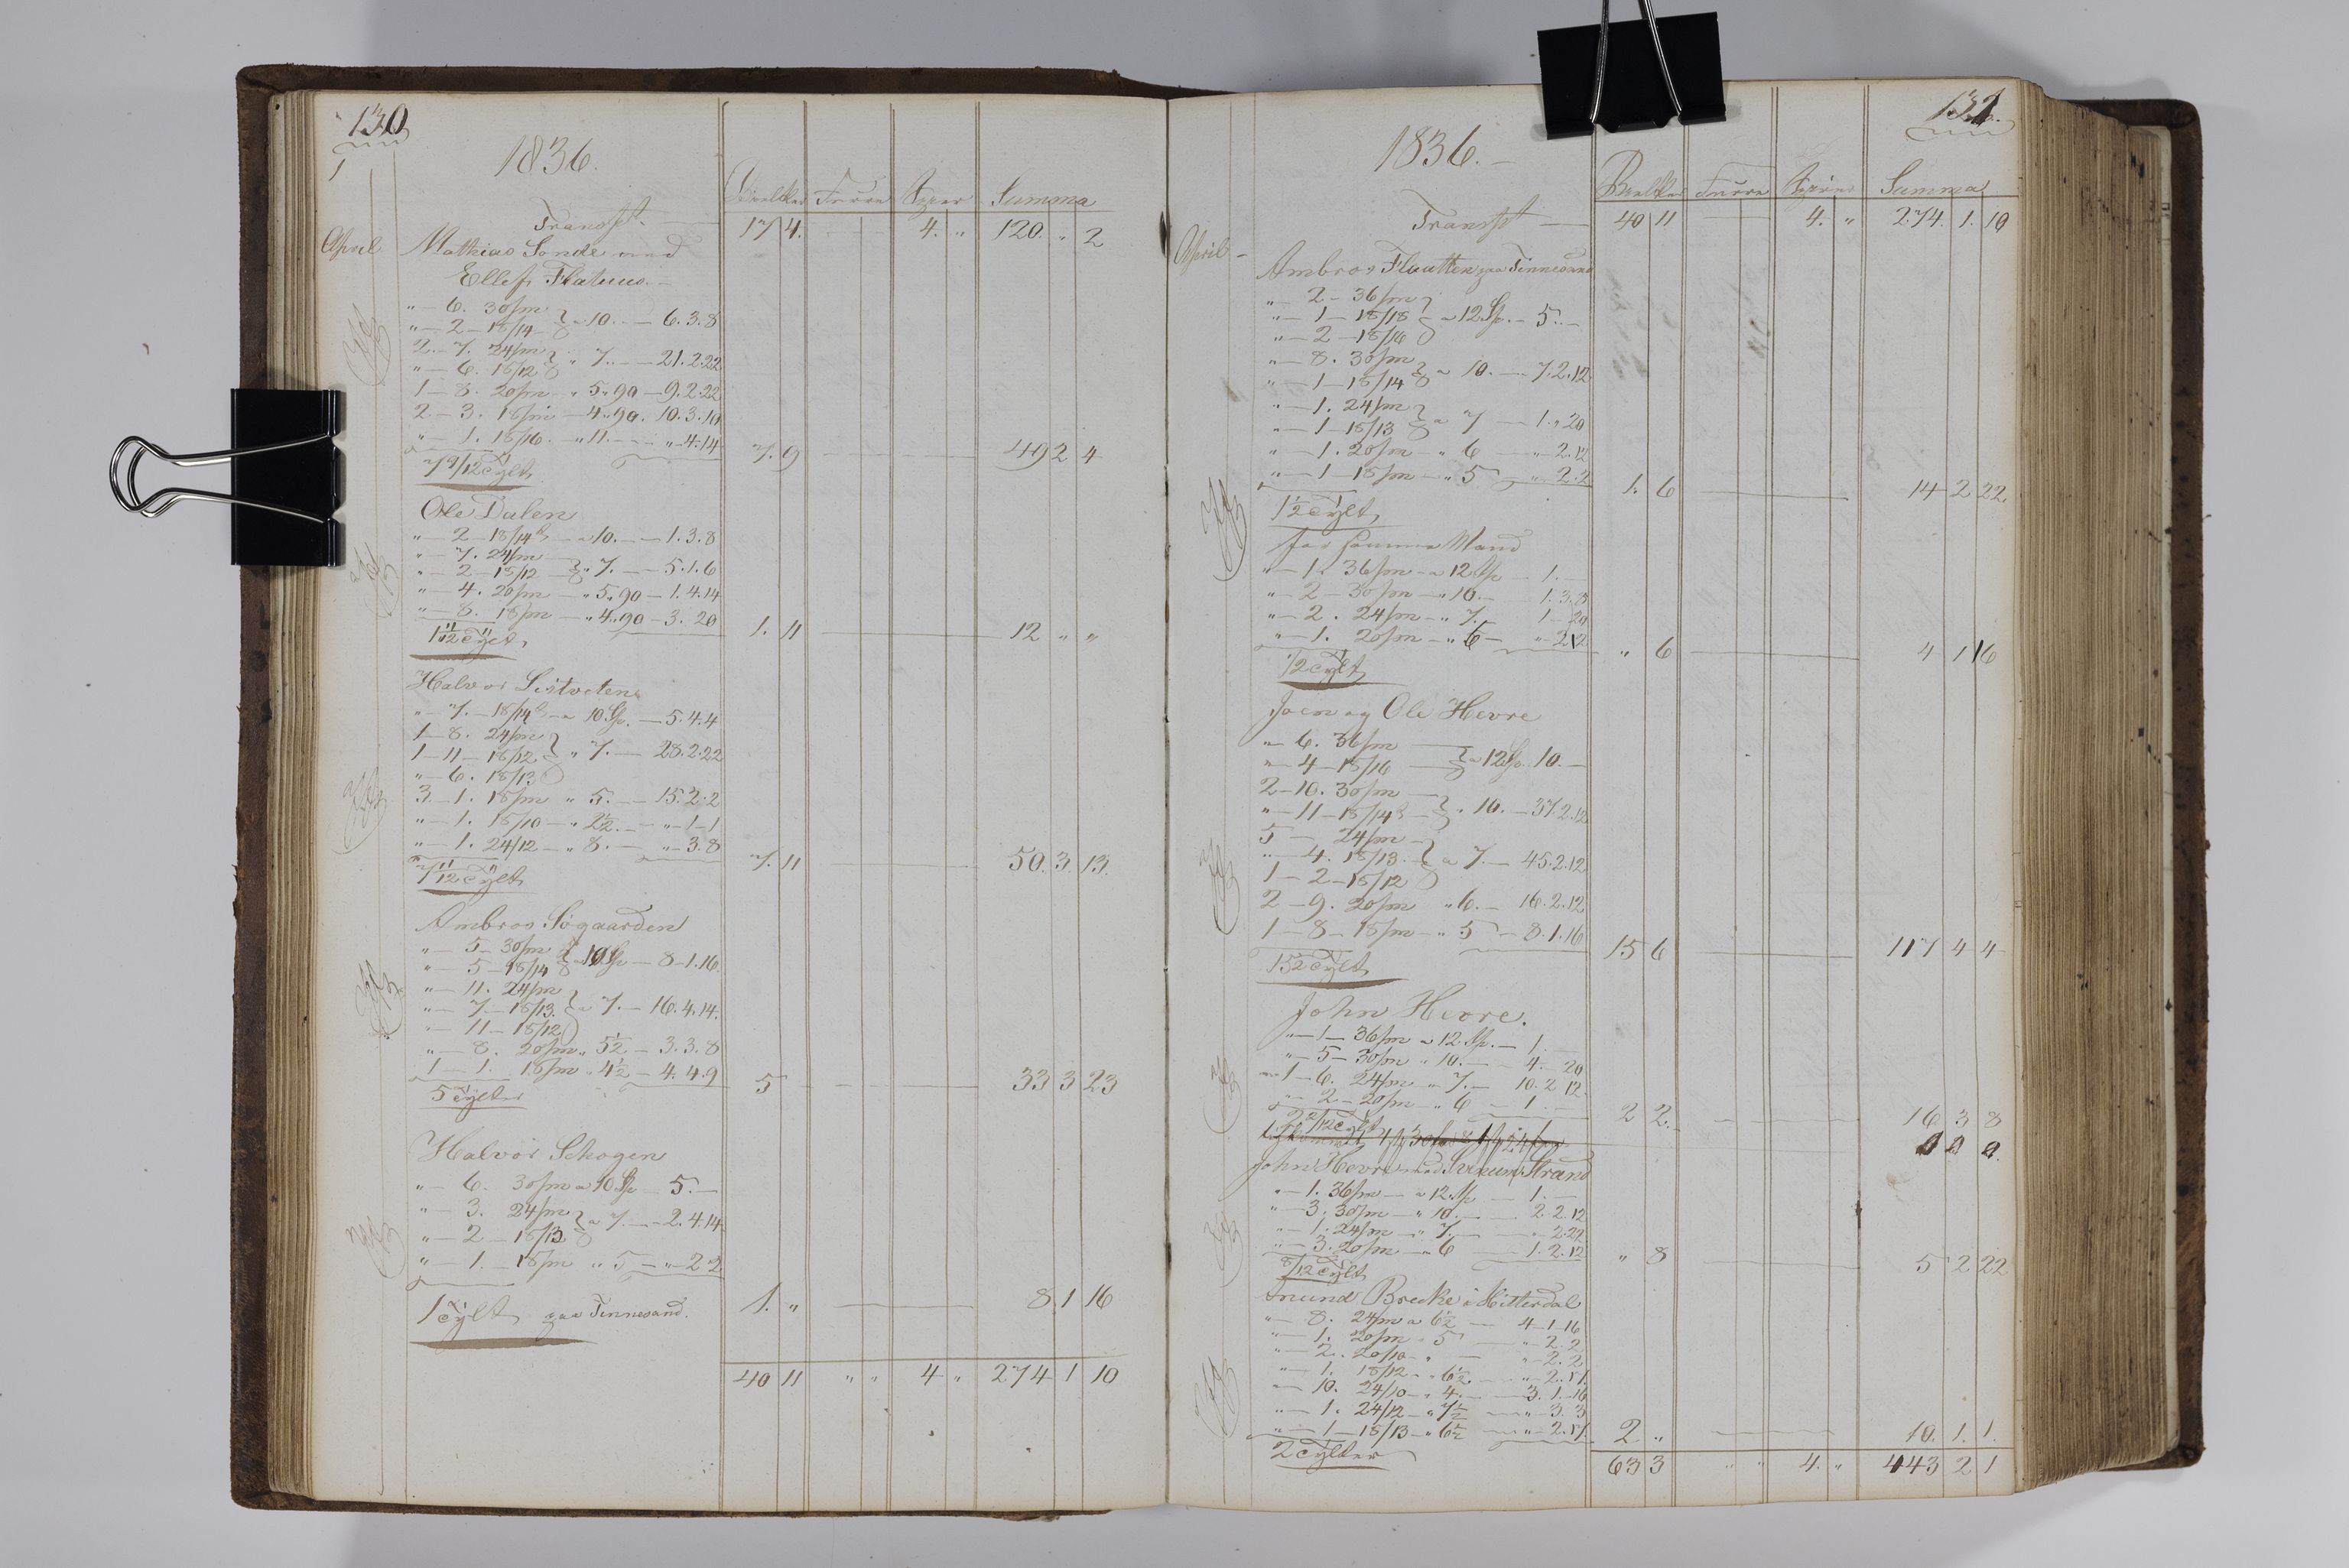 130
1
1836.
Bielker Furre Sperer Summa
Transpt. 17 4. 4. " 120. " 2
April Mathias Sonde med
Ellef Flatuus.
" 6. 30/m
" 2 18/14 } a 10. 6.3.8
2. 7. 24/m
" 6. 18/12 } " 7. 21.2.22
1 8. 20/m " 5 " 90 9.2.22
2 3. 18/m 4 " 90. 10.3.10
" 1. 18/16. " 11. " 4.14
7 9/12 Tylt 7. 9 49 2 4
Ole Dalen
" 2 18/14 a 10. 1.3.8
" 7. 24/m
" 2 18/12 } " 7. 5.1.6
" 4. 20/m " 5 " 90 1.4.14
" 8. 18/m " 4 " 90 3. 20
1 11/12 Tylt 1. 11 12 " "
Halvor Sistveten
" 7. 18/14 a 10 Sp. 5.4.4
1 8. 24/m
1 11 18/12 } " 7. 28.2.22
" 6. 18/13
3 1. 18/m " 5. 15.2.2
" 1. 18/10 " 2 1/2. " 1 1
" 1. 24/12 " 8. " 3.8
7 11/12 Tylt 7. 11 50. 3. 13.
Ambros Søgaarden
" 5 30/m
" 5 18/14 } a 10 Sp 8 1.16.
" 11. 24/m
" 7 18/13. } a 7. 16.4.14.
" 11 18/12
" 8. 20/m " 5 1/2 3.3.8
1 1. 18/m " 4 1/2 4.4.9
5 Tylter 5 33 3 23
Halvor Schogen
" 6. 30/m a 10 Sp 5.
" 3. 24/m
" 2 18/13 } a 7. 2.4.14
" 1. 18/m " 5 " 2 2
1 Tylt paa Tinnesand. 1. " 8 1 16
40 11 " " 4 " 274 1 10
131.
1836.
Bielker Furre Sperer Summa
Transpt 40 11 4. " 274. 1. 10
April Ambros Flautten paa Tinnesand
" 2 36/m
" 1 18/18 } a 12 Sp. 5.
" 2 18/16
" 8. 30/m
" 1 18/14 } a 10. 7.2.12
" 1. 24/m
" 1 18/13 } a 7 1. " 20
" 1. 20/m " 6 " 2.12
" 1 18/m " 5 " 2.2
1 1/2 Tylt 1. 6 14 2 22
for samme Mand
" 1. 36/m a 12 Sp 1.
" 2 30/m " 10. 1.3.8
" 2. 24/m " 7. 1 20
" 1. 20/m " 6 " 2 12
1/2 Tylt " 6 4 1 16
Joen og Ole Hevre
" 6. 36/m
" 4 18/16 } a 12 Sp. 10.
2 10. 30/m
" 11 18/14 } " 10. 37.2.12
5 24/m
" 4. 18/13. } a 7. 45.2.12
1 2 18/12
2 9. 20/m " 6. 16.2.12
1 8 18/m " 5 8.1.16
15 1/2 Tylt 15 6 117 4 4
John Hevre.
" 1 36/m a 12 Sp. 1.
" 5 30/m " 10. 4. 20
1 6. 24/m " 7. 10.2 12.
" 2 20/m " 6 1.
2 2/12 Tylt 2 2. 16 3 8
0 0 0.
John Hevre med Strand
" 1. 36/m a 12 Sp 1.
" 3. 30/m " 10. 2.2.12
" 1. 24/m " 7. " 2.22
" 3. 20/m " 6 1.2.12
8/12 Tylt " 8 5 2 22
Brecke i Hitterdal
" 8. 24/m a 6 1/2 4 1 16
" 1. 20/m " 5 " 2.2
" 2. 20/10 " " 2.2
" 1. 18/12 " 6 1/2. " 2.17.
" 10. 24/10 " 4. 3.1.16
" 1. 24/12 " 7 1/2 " 3.3
" 1 18/13 " 6 1/2 " 2.17.
2 Tylter 2 " 10. 1. 1.
63 3 " " 4. " 443 2 1